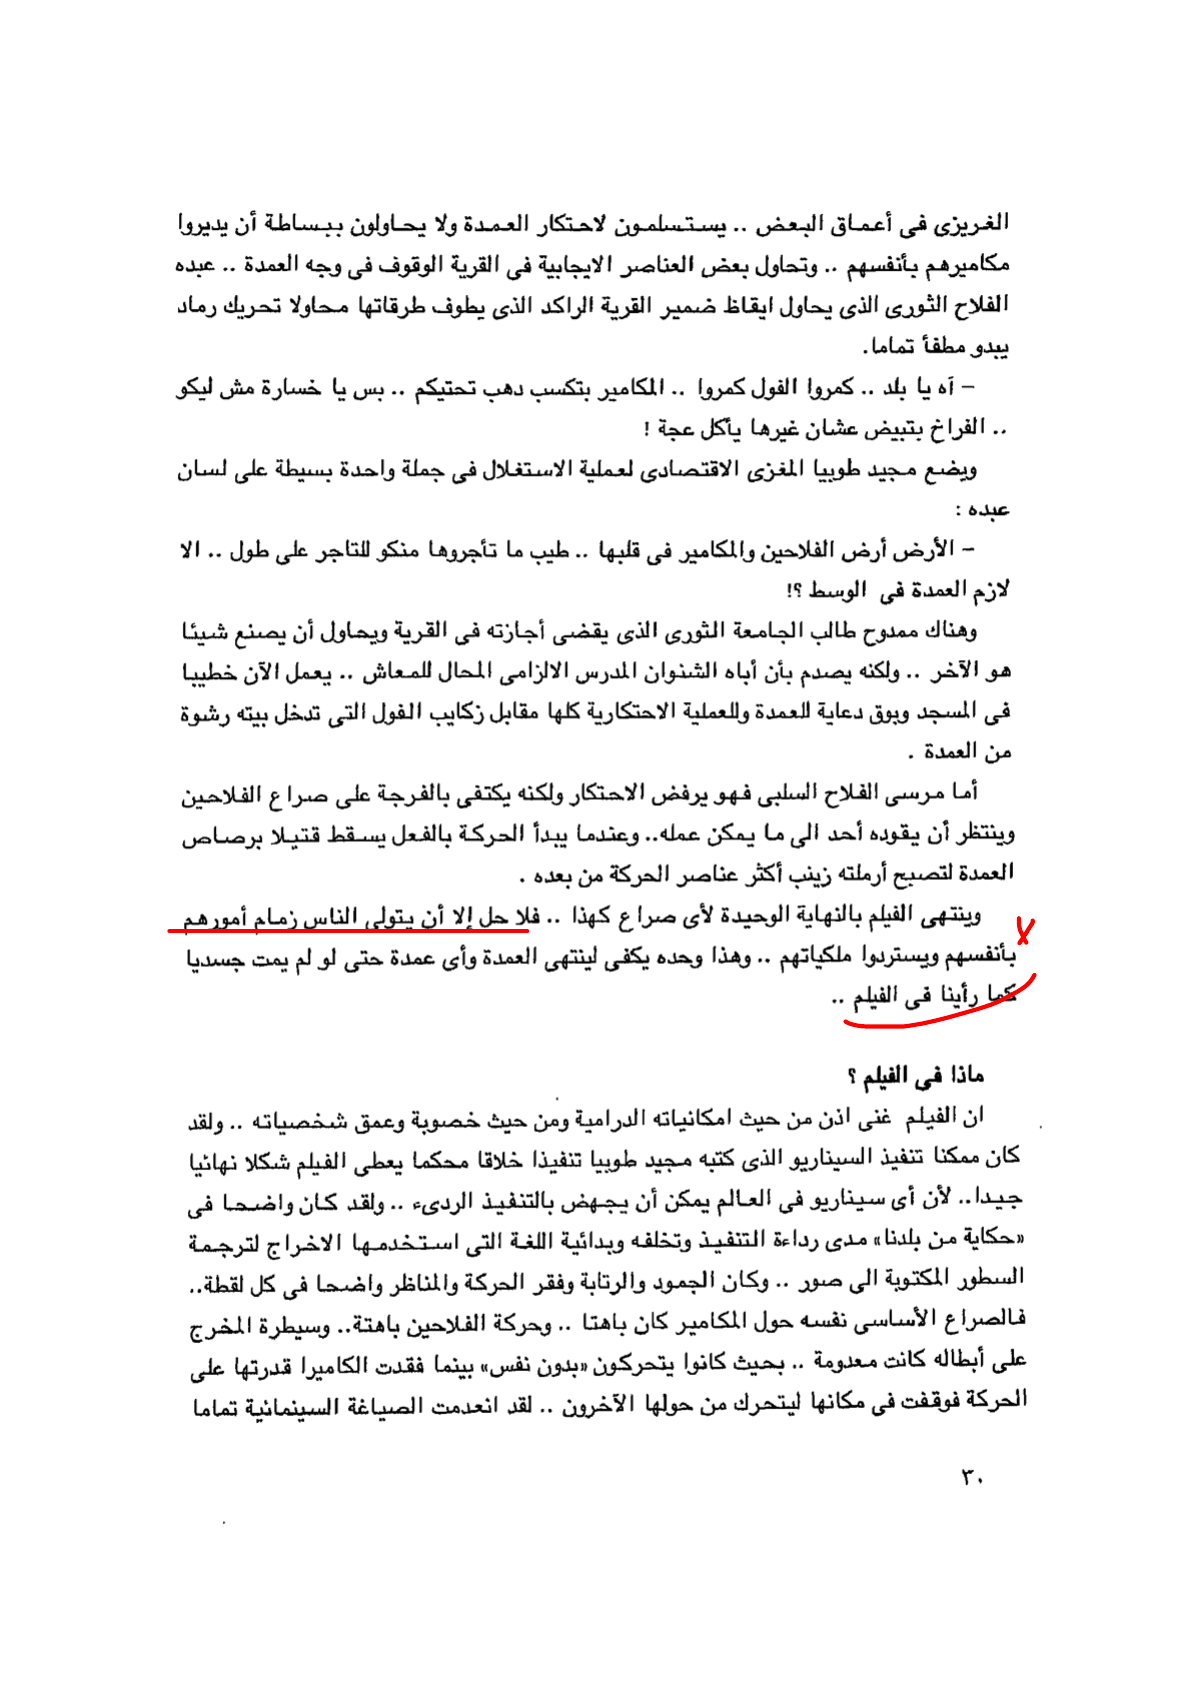 الغريزى فى أعماق البعض .. يستسلمون لاحتكار العمدة ولا يحاولون ببساطة أن يديروا
مكاميرهم بأنفسهم .. وتحاول بعض العناصر الايجابية فى القرية الوقوف فى وجه العمدة .. عبده
الفلاح الثورى الذى يحاول ايقاظ ضمير القرية الراكد الذى يطوف طرقاتها محاولا تحريك رماد
يبدو مطفأ تماما.
– آه يا بلد .. كمروا الفول كمروا .. المكامير بتكسب دهب تحتيكم .. بس يا خسارة مش ليكو
.. الفراخ بتبيض عشان غيرها يأكل عجة !
ويضع مجيد طوبيا المغزى الاقتصادى لعملية الاستغلال فى جملة واحدة بسيطة على لسان
عبده :
– الأرض أرض الفلاحين والمكامير فى قلبها .. طيب ما تأجروها منكو للتاجر على طول .. الا
لازم العمدة فى الوسط ؟!
وهناك ممدوح طالب الجامعة الثورى الذى يقضى أجازته فى القرية ويحاول أن يصنع شيئا
هو الآخر .. ولكنه يصدم بأن أباه الشنوان المدرس الالزامى المحال للمعاش .. يعمل الآن خطيبا
فى المسجد وبوق دعاية للعمدة وللعملية الاحتكارية كلها مقابل زكايب الفول التى تدخل بيته رشوة
من العمدة .
أما مرسى الفلاح السلبى فهو يرفض الاحتكار ولكنه يكتفى بالفرجة على صراع الفلاحين
وينتظر أن يقوده أحد الى ما يمكن عمله.. وعندما يبدأ الحركة بالفعل يسقط قتيلا برصاص
العمدة لتصبح أرملته زينب أكثر عناصر الحركة من بعده .
وينتهى الفيلم بالنهاية الوحيدة لأى صراع كهذا .. فلا حل إلا أن يتولى الناس زمام أمورهم
بأنفسهم ويستردوا ملكياتهم .. وهذا وحده يكفى لينتهى العمدة وأى عمدة حتى لو لم يمت جسديا
كما رأينا فى الفيلم ..
ماذا فى الفيلم ؟
ان الفيلم غنى اذن من حيث امكانياته الدرامية ومن حيث خصوبة وعمق شخصياته .. ولقد
كان ممكنا تنفيذ السيناريو الذى كتبه مجيد طوبيا تنفيذا خلاقا محكما يعطى الفيلم شكلا نهائيا
جيدا.. لأن أى سيناريو فى العالم يمكن أن يجهض بالتنفيذ الردىء .. ولقد كان واضحا فى
«حكاية من بلدنا» مدى رداءة التنفيذ وتخلفه وبدائية اللغة التى استخدمها الاخراج لترجمة
السطور المكتوبة الى صور .. وكان الجمود والرتابة وفقر الحركة والمناظر واضحا فى كل لقطة..
فالصراع الأساسى نفسه حول المكامير كان باهتا .. وحركة الفلاحين باهتة.. وسيطرة المخرج
على أبطاله كانت معدومة .. بحيث كانوا يتحركون «بدون نفس» بينما فقدت الكاميرا قدرتها على
الحركة فوقفت فى مكانها ليتحرك من حولها الآخرون .. لقد انعدمت الصياغة السينمائية تماما
٣٠